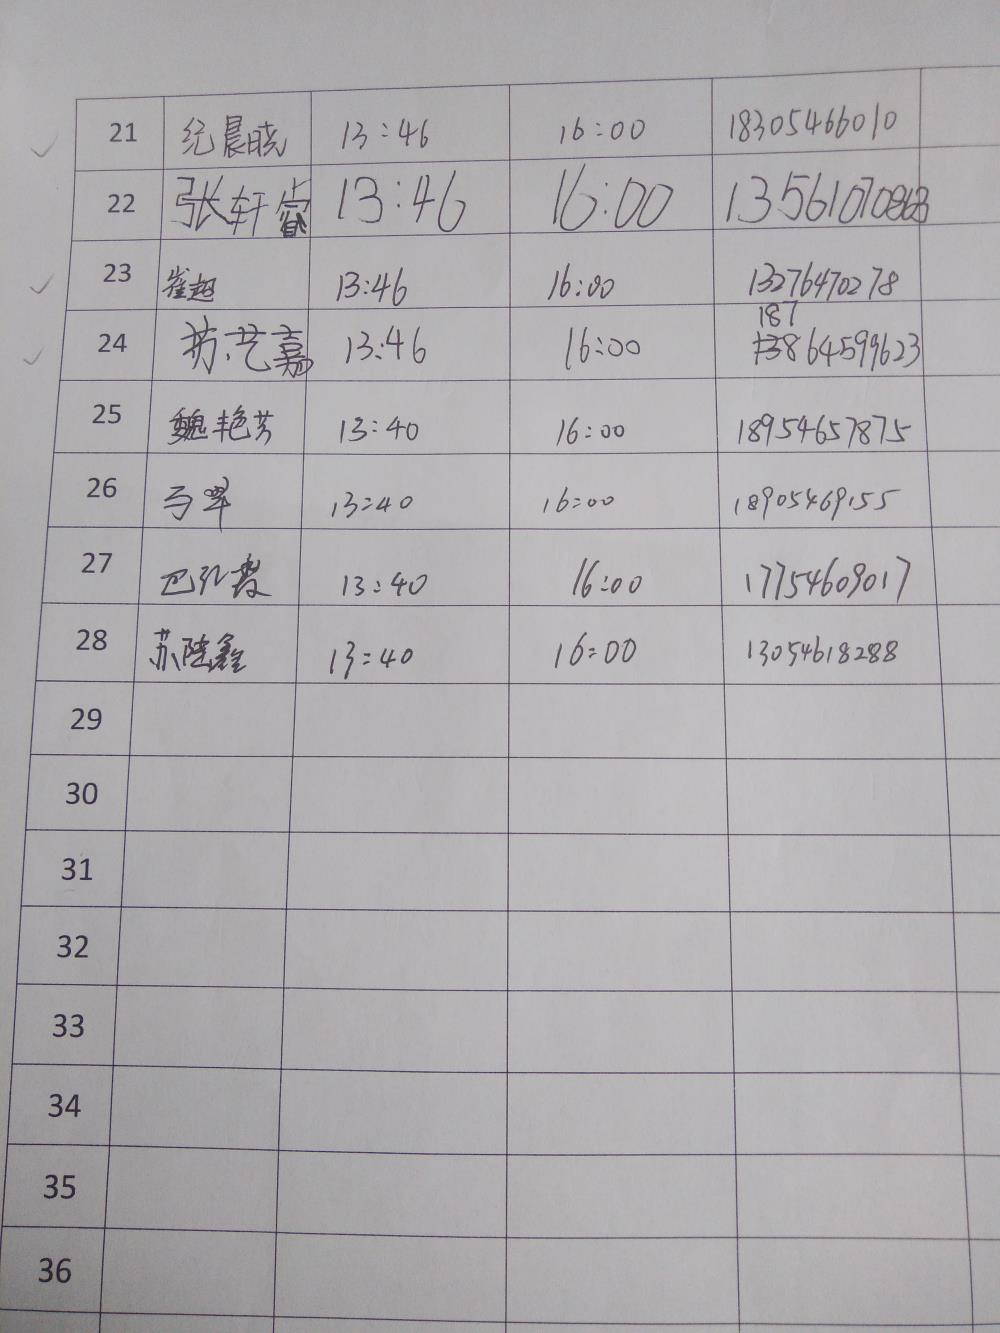 21 纪晨晓 13:46 16:00 18305466010
22 张轩睿 13:46 16:00 13561070868
23 崔超 13:46 16:00 13276470278
187
24 苏艺嘉 13:46 16:00 64599623
25 魏艳芳 13:40 16:00 18954657875
26 13:40 16:00 18905469155
27 巴 13:40 16:00 17754609017
28 苏陆鑫 13:40 16:00 13054618288
29
30
31
32
33
34
35
36